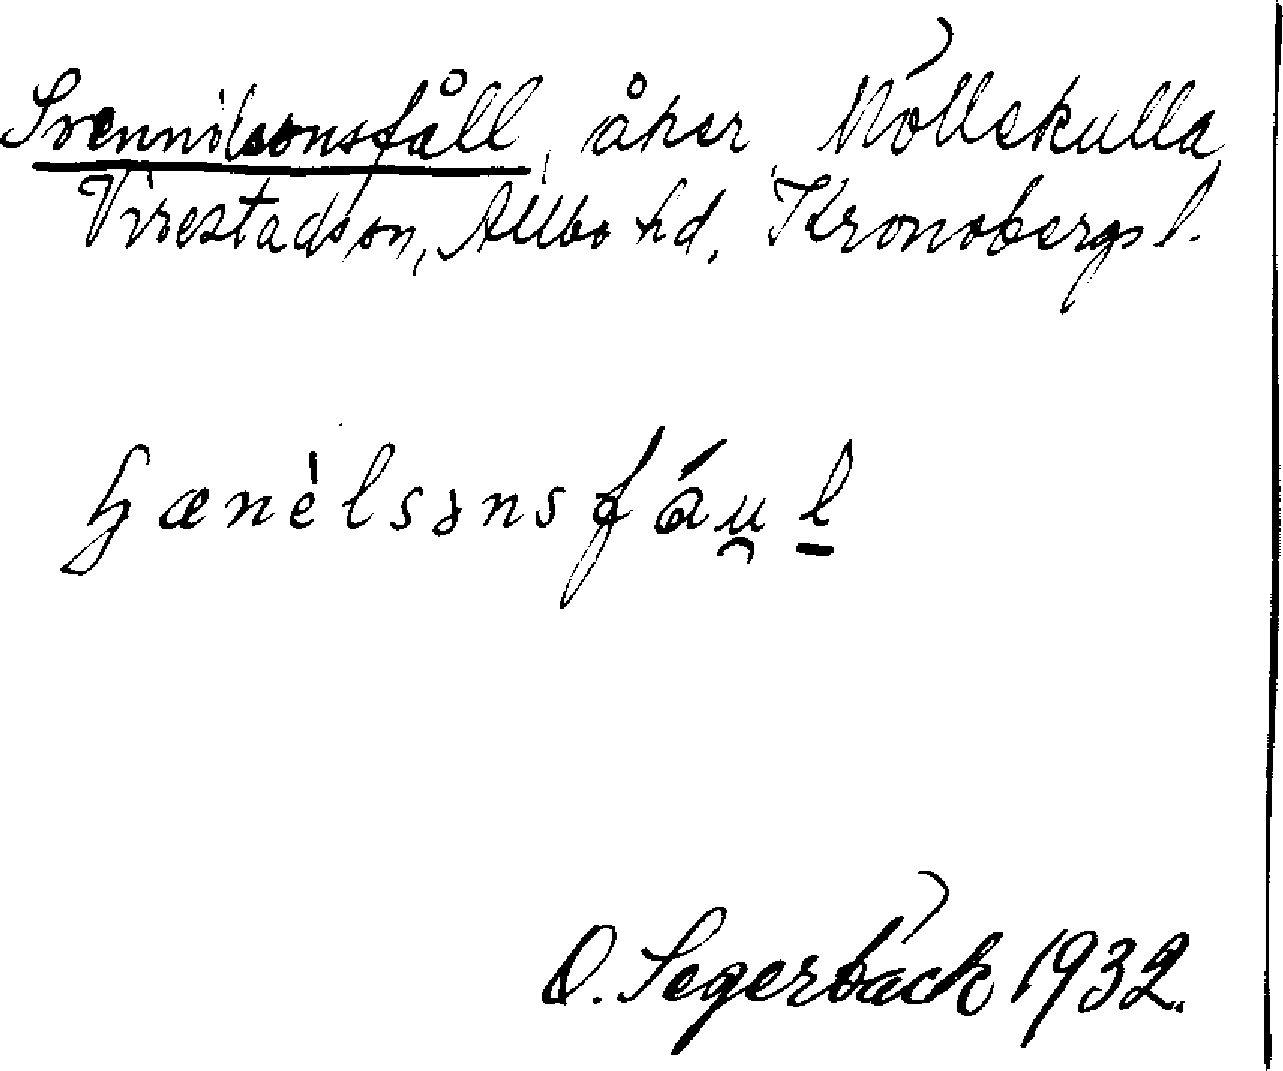 Svennilsonsfåll, åker, Möllekulla,
Virestads sn, Allbo hd, Kronobergs l.
O. Segerbäck 1932.